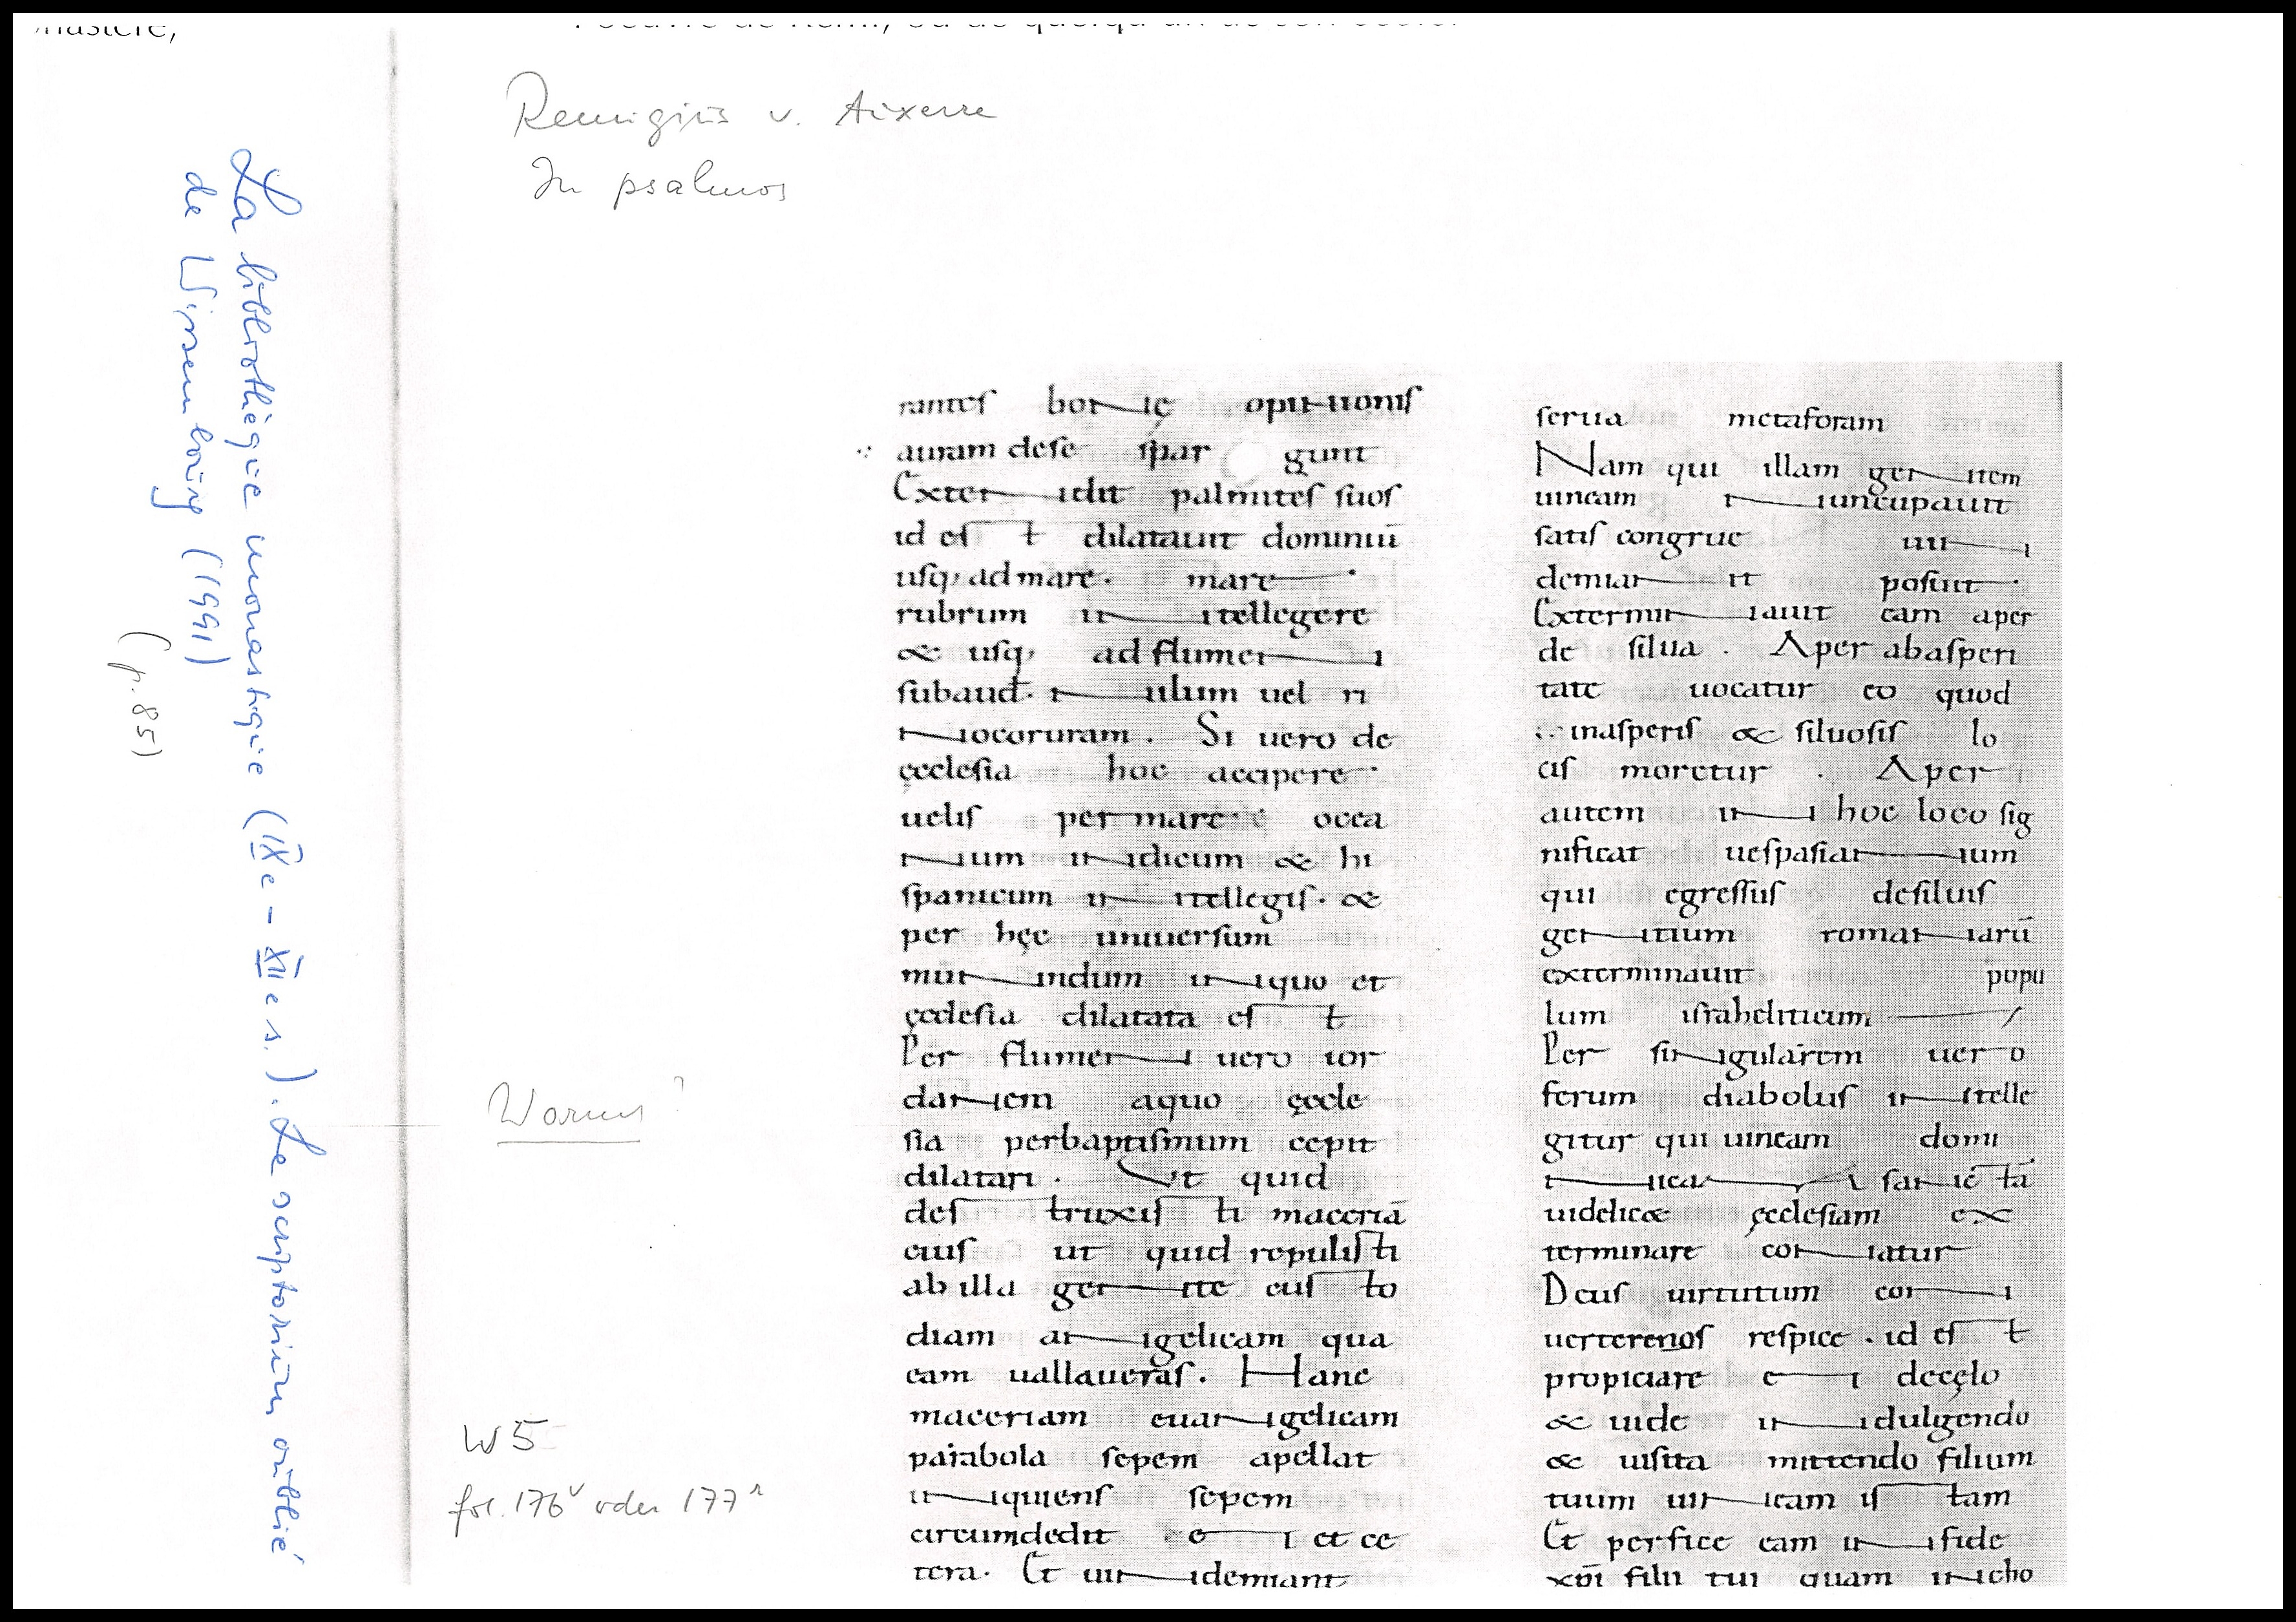 Remigius v. Auxerre
In psalmos
La bibliothèque monastique (IXe - XIIe s.). Le scriptorium oublié
de Wissembourg (1991)
(p. 85)
Worms?
W 5
fol. 176v oder 177r
rantes bonę opinionis
auram dese spargunt
Extendit palmites suos
id est dilatauit dominiū
usq; ad mare. mare
rubrum intellegere
& usq; ad flumen
subaud. nilum uel ri
nocoruram. Si uero de
ęcclesia hoc accipere
uelis per mare occa
nium indicum & hi
spanicum intellegis. &
per hęc uniuersum
mundum in quo et
ęcclesia dilatata est
Per flumen uero ior
danem aquo ęccle
sia perbaptismum cepit
dilatari. Ut quid
destruxisti maceriā
eius ut quid repulisti
ab illa gente custo
diam angelicam qua
eam uallaueras. Hanc
maceriam euangelicam
parabola sepem apellat
inquiens sepem
circumdedit ei et ce
tera. Et uindemiant
serua metaforam
Nam qui illam gentem
uineam nuncupauit
satis congrue uin
demiant posuit.
Exterminauit eam aper
de silua. Aper abasperi
tate uocatur eo quod
inasperis & siluosis lo
cis moretur. Aper
autem in hoc loco sig
nificat uespasianum
qui egressus desiluis
gentium romanarū
exterminauit popu
lum israheliticum
Per singularem uero
ferum diabolus intelle
gitur qui uineam domi
nicam sanctā
uidelic& ęcclesiam ex
terminare conatur
Deus uirtutum con
uerterenos respice. id est
propiciare de cęlo
& uide indulgendo
& uisita mittendo filium
tuum uineam istam
Et perfice eam in fide
xp̄i filii tui quam incho